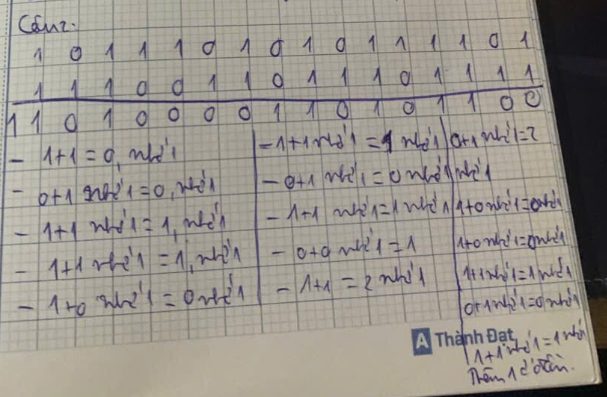 Câu 2.
1 0 1 1 1 0 1 0 1 0 1 1 1 1 0 1
1 1 1 0 0 1 1 0 1 1 1 0 1 1 1 1
1 1 0 1 0 0 0 0 1 1 0 1 0 1 1 0 0
- 1+1 = 0, nhớ 1
- 0+1 nhớ 1 = 0, nhớ 1
- 1+1 nhớ 1 = 1, nhớ 1
- 1+1 nhớ 1 = 1, nhớ 1
- 1+0 nhớ 1 = 0 nhớ 1
- 1+1 nhớ 1 = 1 nhớ 1
- 0+1 nhớ 1 = 0 nhớ 1
- 1+1 nhớ 1 = 1 nhớ 1
- 0+0 nhớ 1 = 1
- 1+1 = 2 nhớ 1
0+1 nhớ 1 = 2
nhớ 1
1+0 nhớ 1 = 0 nhớ 1
1+0 nhớ 1 = 0 nhớ 1
1+1 nhớ 1 = 1 nhớ 1
0+1 nhớ 1 = 0 nhớ 1
1+1 nhớ 1 = 1 nhớ
Thêm 1 ở đầu.
A Thành Đạt